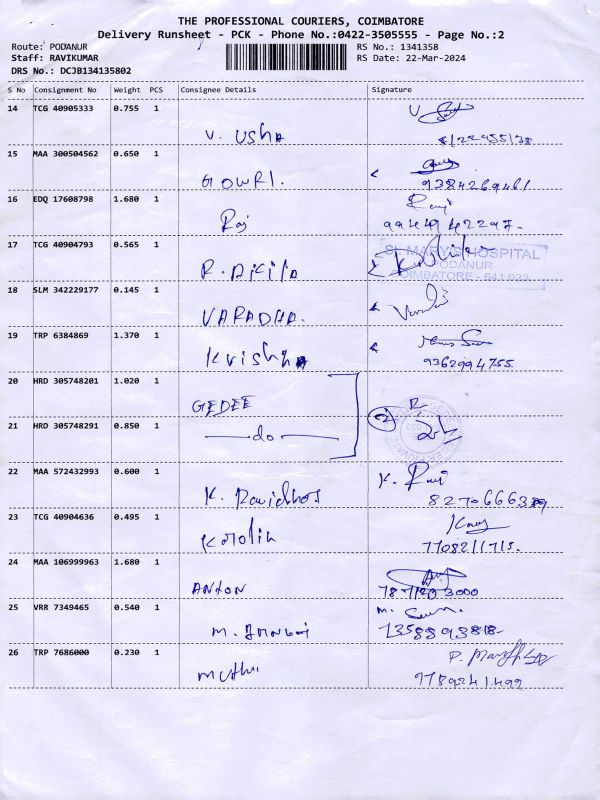 THE PROFESSIONAL COURIERS, COIMBATORE
Delivery Runsheet - PCK - Phone No.:0422-3505555 - Page No.:2
Route: PODANUR
RS No.: 1341358
Staff: RAVIKUMAR
RS Date: 22-Mar-2024
DRS No.: DCJB134135802
S No Consignment No Weight PCS Consignee Details Signature
14 TCG 40905333 0.755 1
V. USHA
15 MAA 300504562 0.650 1
GOWRI.
9384269461
16 EDQ 17608798 1.680 1
Raj
Ravi
9944942297.
17 TCG 40904793 0.565 1
R. AKILA
ST. MARY'S HOSPITAL
PODANUR
COIMBATORE - 641 023
18 SLM 342229177 0.145 1
VARADHA.
19 TRP 6384869 1.370 1
Krishna
9362994755
20 HRD 305748201 1.020 1
GEDEE
21 HRD 305748291 0.850 1
do
22 MAA 572432993 0.600 1
K. Ravi
23 TCG 40904636 0.495 1
7708211715.
24 MAA 106999963 1.680 1
ANTON
25 VRR 7349465 0.540 1
M.
M.
26 TRP 7686000 0.230 1
Muthu
9789241499